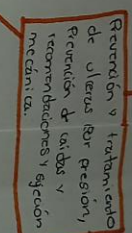 Prevención y tratamiento
de ulceras por presión,
Prevención de caidas y
recomendaciones y sujeción
mecánica.